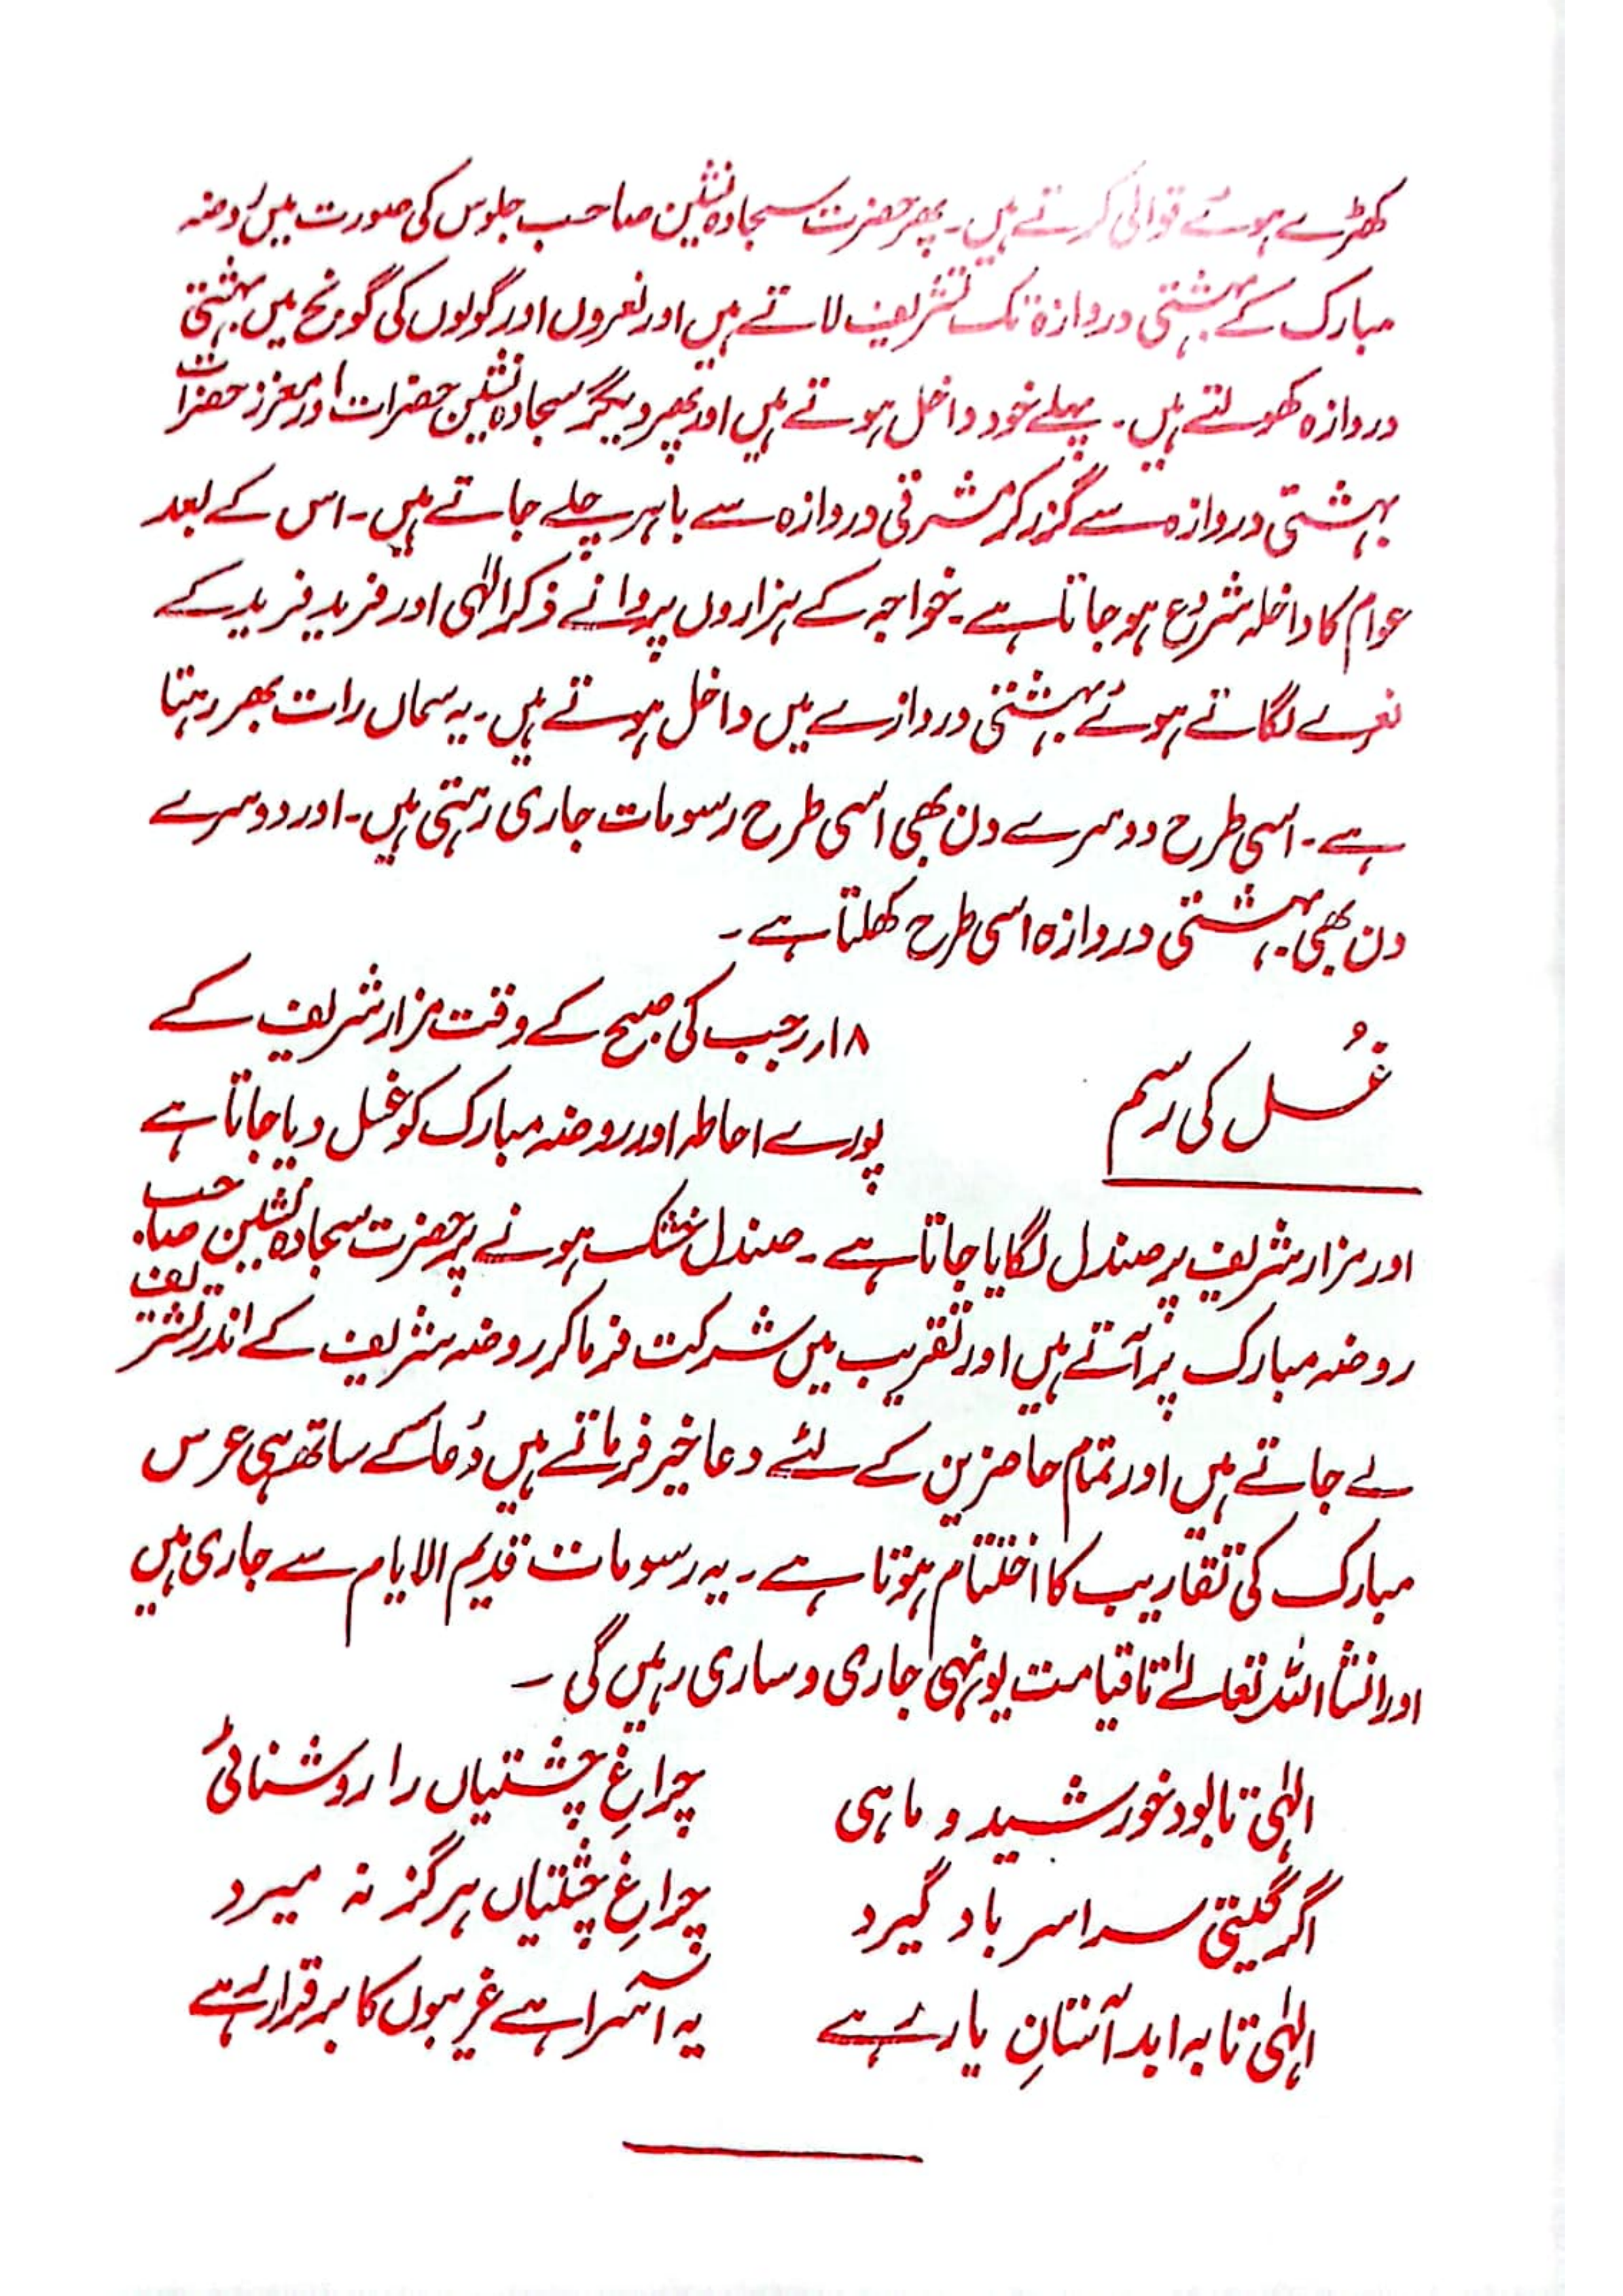 کھڑے ہوئے قوالی کرتے ہیں۔ پھر حضرت سجادہ نشین صاحب جلوس کی صورت میں روضہ
مبارک کے بہشتی دروازہ تک تشریف لاتے ہیں اور نعروں اور گولوں کی گونج میں بہشتی
دروازہ کھولتے ہیں۔ پہلے خود داخل ہوتے ہیں اور پھر دیگر سجادہ نشین حضرات اور معزز حضرات
بہشتی دروازہ سے گزر کر مشرقی دروازہ سے باہر چلے جاتے ہیں۔ اس کے بعد
عوام کا داخلہ شروع ہو جاتا ہے۔ خواجہ کے ہزاروں پروانے ذکر الٰہی اور فرید فرید کے
نعرے لگاتے ہوئے بہشتی دروازے میں داخل ہوتے ہیں۔ یہ سماں رات بھر رہتا
ہے۔ اسی طرح دوسرے دن بھی اسی طرح رسومات جاری رہتی ہیں۔ اور دوسرے
دن بھی بہشتی دروازہ اسی طرح کھلتا ہے۔
غُسل کی رسم
۱۸ رجب کی صبح کے وقت مزار شریف کے
پورے احاطہ اور روضہ مبارک کو غسل دیا جاتا ہے
اور مزار شریف پر صندل لگایا جاتا ہے۔ صندل خشک ہونے پر حضرت سجادہ نشین صاحب
روضہ مبارک پر آتے ہیں اور تقریب میں شرکت فرما کر روضہ شریف کے اندر تشریف
لے جاتے ہیں اور تمام حاضرین کے لئے دعا خیر فرماتے ہیں دُعا کے ساتھ ہی عرس
مبارک کی تقاریب کا اختتام ہوتا ہے۔ یہ رسومات قدیم الایام سے جاری ہیں
اور انشا اللہ تعالےٰ تا قیامت یونہی جاری و ساری رہیں گی۔
الٰہی تا بود خورشید و ماہی چراغِ چشتیاں را روشنائی
اگر گیتی سراسر باد گیرد چراغِ چشتیاں ہرگز نہ میرد
الٰہی تا بہ ابد آستانِ یار رہے یہ آسرا ہے غریبوں کا برقرار رہے